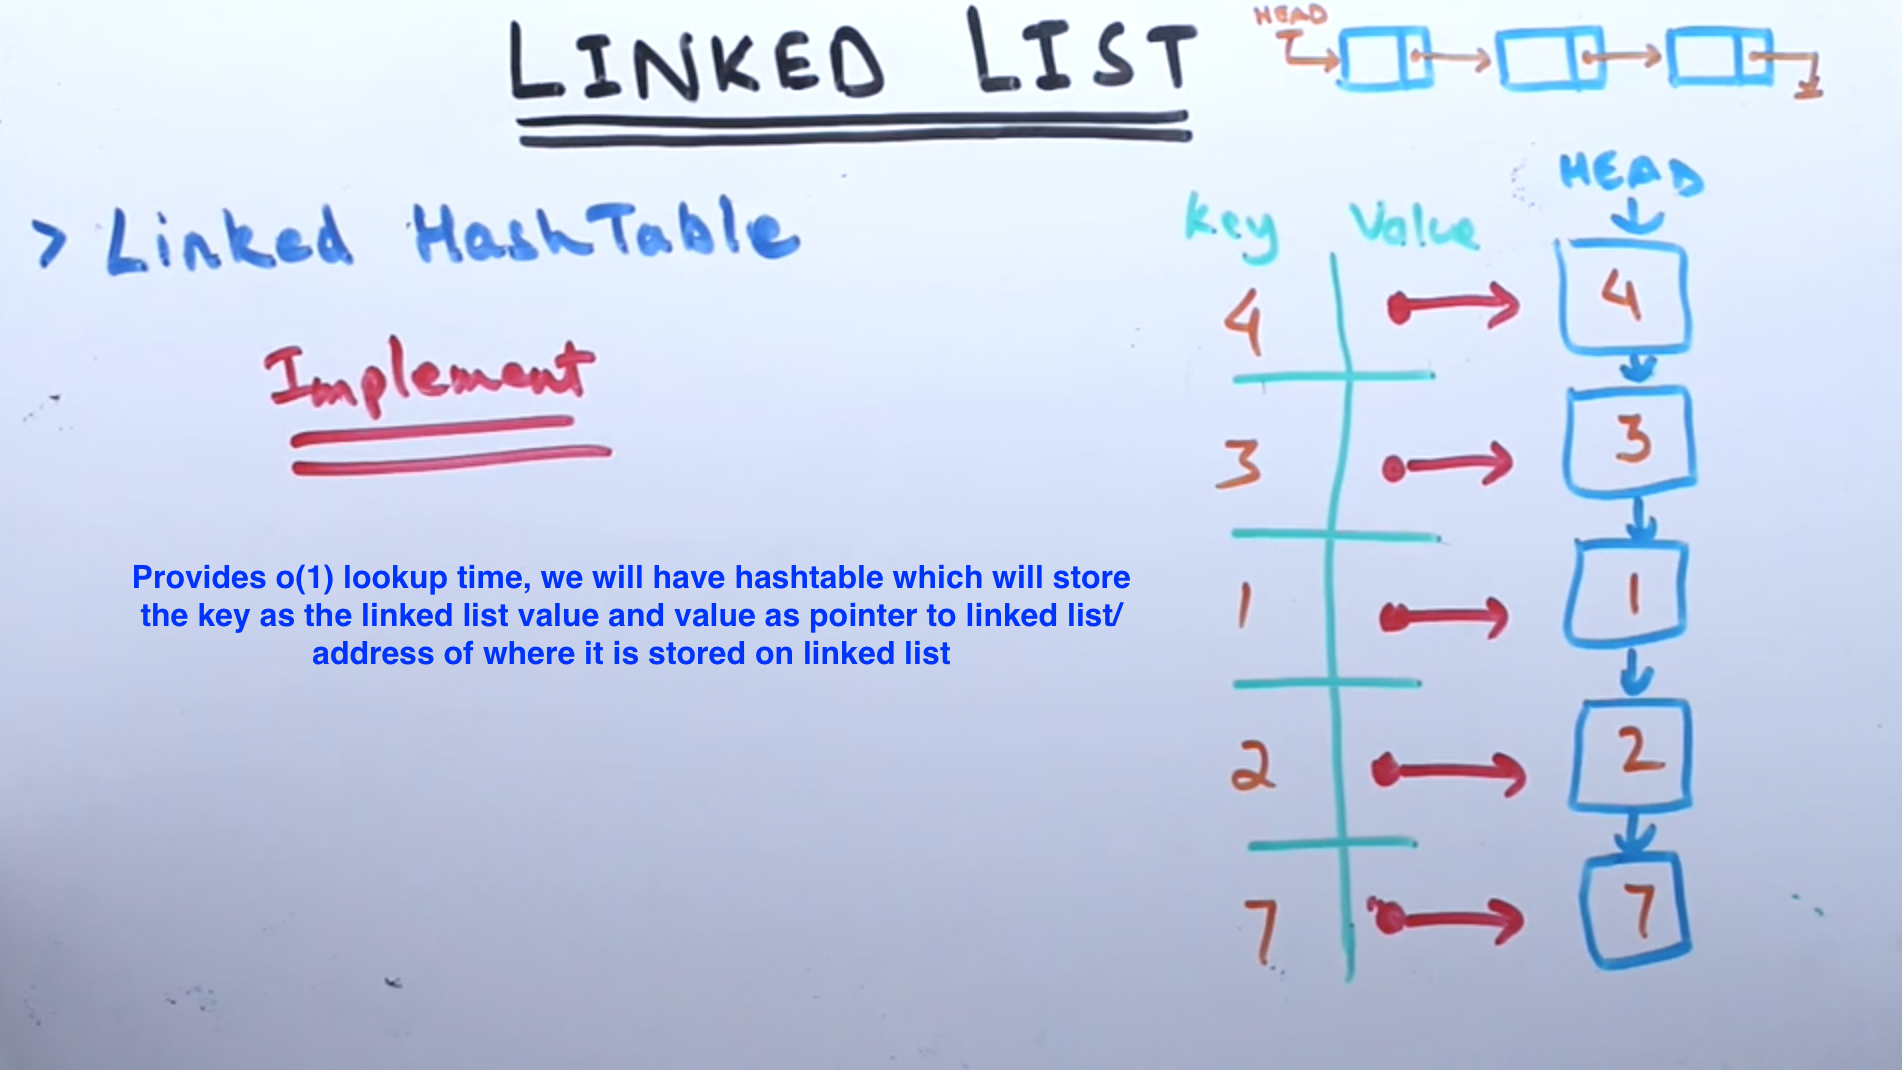 LINKED LIST
HEAD
> Linked HashTable
Implement
Provides o(1) lookup time, we will have hashtable which will store
the key as the linked list value and value as pointer to linked list/
address of where it is stored on linked list
Key Value HEAD
4 4
3 3
1 1
2 2
7 7